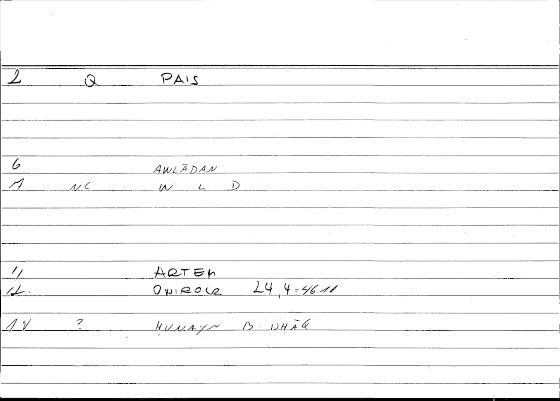 2 Q PAIS
6 AWLĀDAN
1 NC W L D
11 ARTEM
12. ONIROCR 24,4 = 46 11
14 ? HUNAYN B ISHĀQ